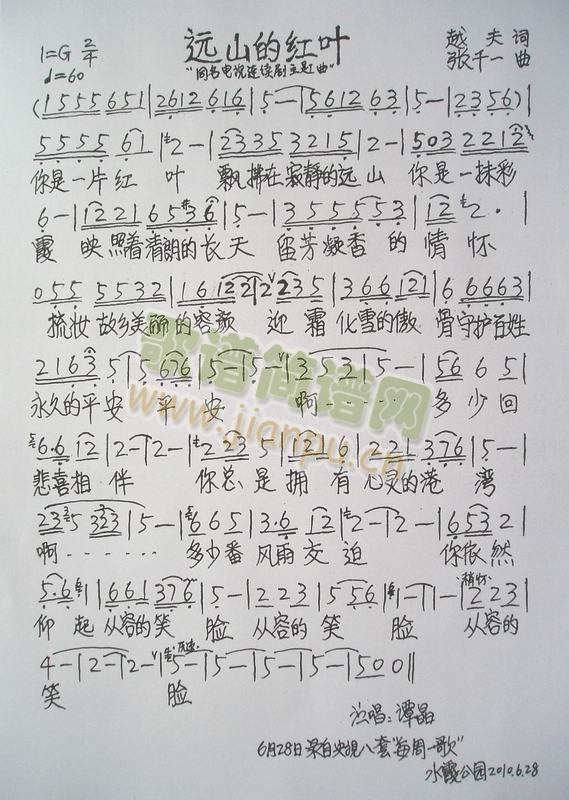 远山的红叶
"同名电视连续剧主题曲"
1=G 2/4
♩=60
越夫 词
张千一 曲
(1555651|2612616|5-|561263|5-|2356)|
555561|2-|22335 3215|2-|503 2212|
你是一片红 叶 飘拂在寂静的远山 你是一抹彩
6-|1221 6536|5-|355553|12 2·|
霞 映照着清朗的长天 留芳凝香的情怀
055 5532|161221|22235|366121|6 6663|
梳妆故乡美丽的容颜 迎霜化雪的傲骨守护百姓
2163 5|5 676|5-|5-|3 5 3 1|5-|56 6 5|
永久的平安 平 安 啊…… 多少回
6·6 12|2-|2-|2 23 5|1216|221 376|5-|
悲喜相伴 你总是拥有心灵的港湾
235 323|5-|665|3·6 12|2-|2-|653 2|
啊…… 多少番风雨交迫 你依然
5·6 1|661 376|5-|223|556|1-|1-|223|
稍怀
仰起从容的笑脸 从容的笑脸 从容的
4-|2-|2-|5-|5-|5-|5-|500‖
笑 脸
演唱:谭晶
6月28日录自央视八套"每周一歌"
水霞公园2010.6.28
歌谱简谱网
www.jianpu.cn